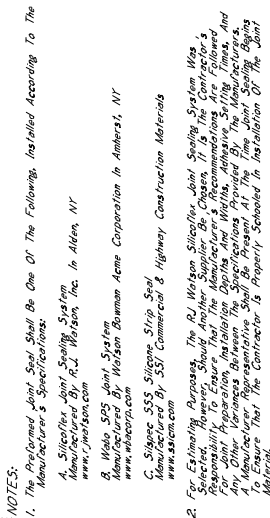 NOTES:
1. The Preformed Joint Seal Shall Be One Of The Following, Installed According To The
Manufacturer's Specifications:
A. Silicoflex Joint Sealing System
Manufactured By R.J. Watson, Inc. In Alden, NY
www.rjwatson.com
B. Wabo SPS Joint System
Manufactured By Watson Bowman Acme Corporation In Amherst, NY
www.wbacorp.com
C. Silspec SSS Silicone Strip Seal
Manufactured By SSI Commercial & Highway Construction Materials
www.ssicm.com
2. For Estimating Purposes, The RJ Watson Silicoflex Joint Sealing System Was
Selected. However, Should Another Supplier Be Chosen, It Is The Contractor's
Responsibility To Ensure That The Manufacturer's Recommendations Are Followed
For Joint Preparation, Installation Depths And Widths, Adhesive Setting Times, And
Any Other Variances Between The Specifications Provided By The Manufacturers.
A Manufacturer Representative Shall Be Present At The Time Joint Sealing Begins
To Ensure That The Contractor Is Properly Schooled In Installation Of The Joint
Material.